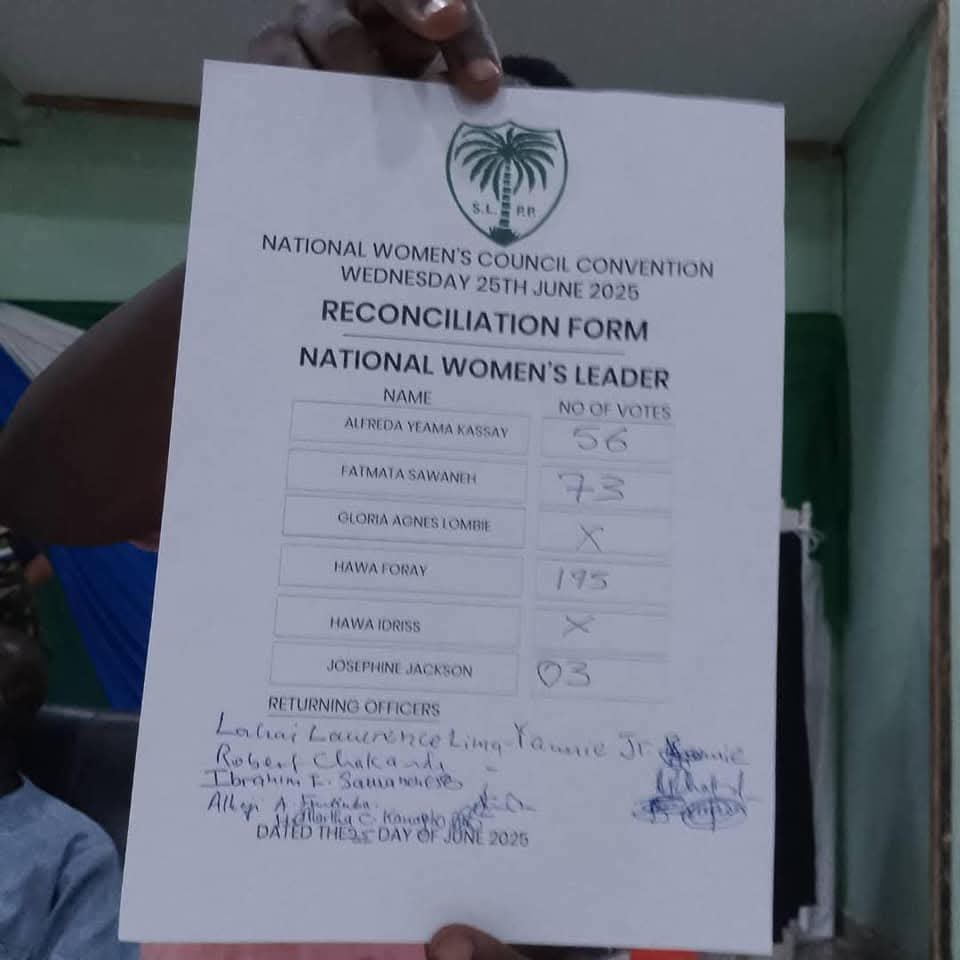 S.L. P.P.
NATIONAL WOMEN'S COUNCIL CONVENTION
WEDNESDAY 25TH JUNE 2025
RECONCILIATION FORM
NATIONAL WOMEN'S LEADER
NAME NO OF VOTES
ALFREDA YEAMA KASSAY 56
FATMATA SAWANEH 73
GLORIA AGNES LOMBIE X
HAWA FORAY 195
HAWA IDRISS X
JOSEPHINE JACKSON 03
RETURNING OFFICERS
Lahai Lawrence Lima-Yannie Jr
Robert Chakanda
Ibrahim F.
Alhaji A.
Martha C. Kanagbo
DATED THE 25 DAY OF JUNE 2025